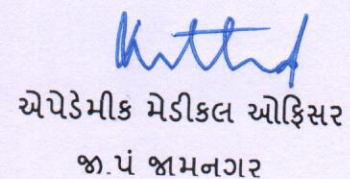 એપેડેમીક મેડીકલ ઓફિસર
જી.પં જામનગર